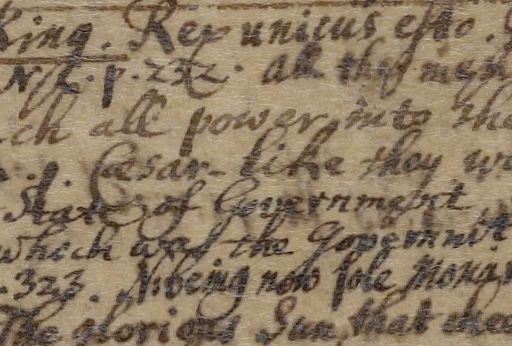 King. Rex unicus esto.
p. 232. all this
ch all power into the
p. Cæsar-like they
State of Government
which was the Governmt
.323. being now sole Monar
The glorious Sun, that